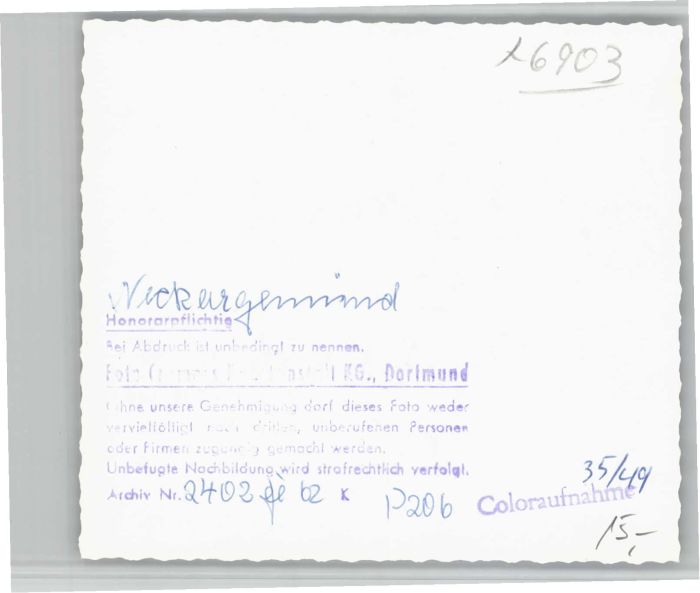 6903
Neckargemünd
Honorarpflichtig
Bei Abdruck ist unbedingt zu nennen.
Foto KG., Dortmund
Ohne unsere Genehmigung darf dieses Foto weder
vervielfältigt noch dritten, unberufenen Personen
oder Firmen zugängig gemacht werden.
Unbefugte Nachbildung wird strafrechtlich verfolgt.
Archiv Nr. 2402 62 K P206
35/49
Coloraufnahme
15,-